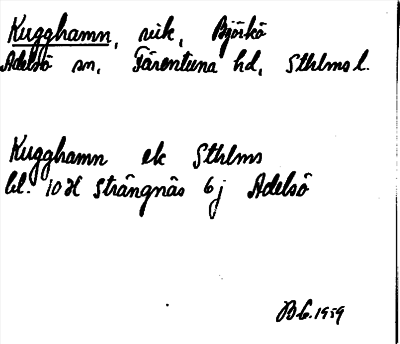 Kugghamn, vik, Björkö
Adelsö sn, Färentuna hd, Sthlms l.
Kugghamn ek Sthlms
bl. 10 H Strängnäs 6 j Adelsö
1959